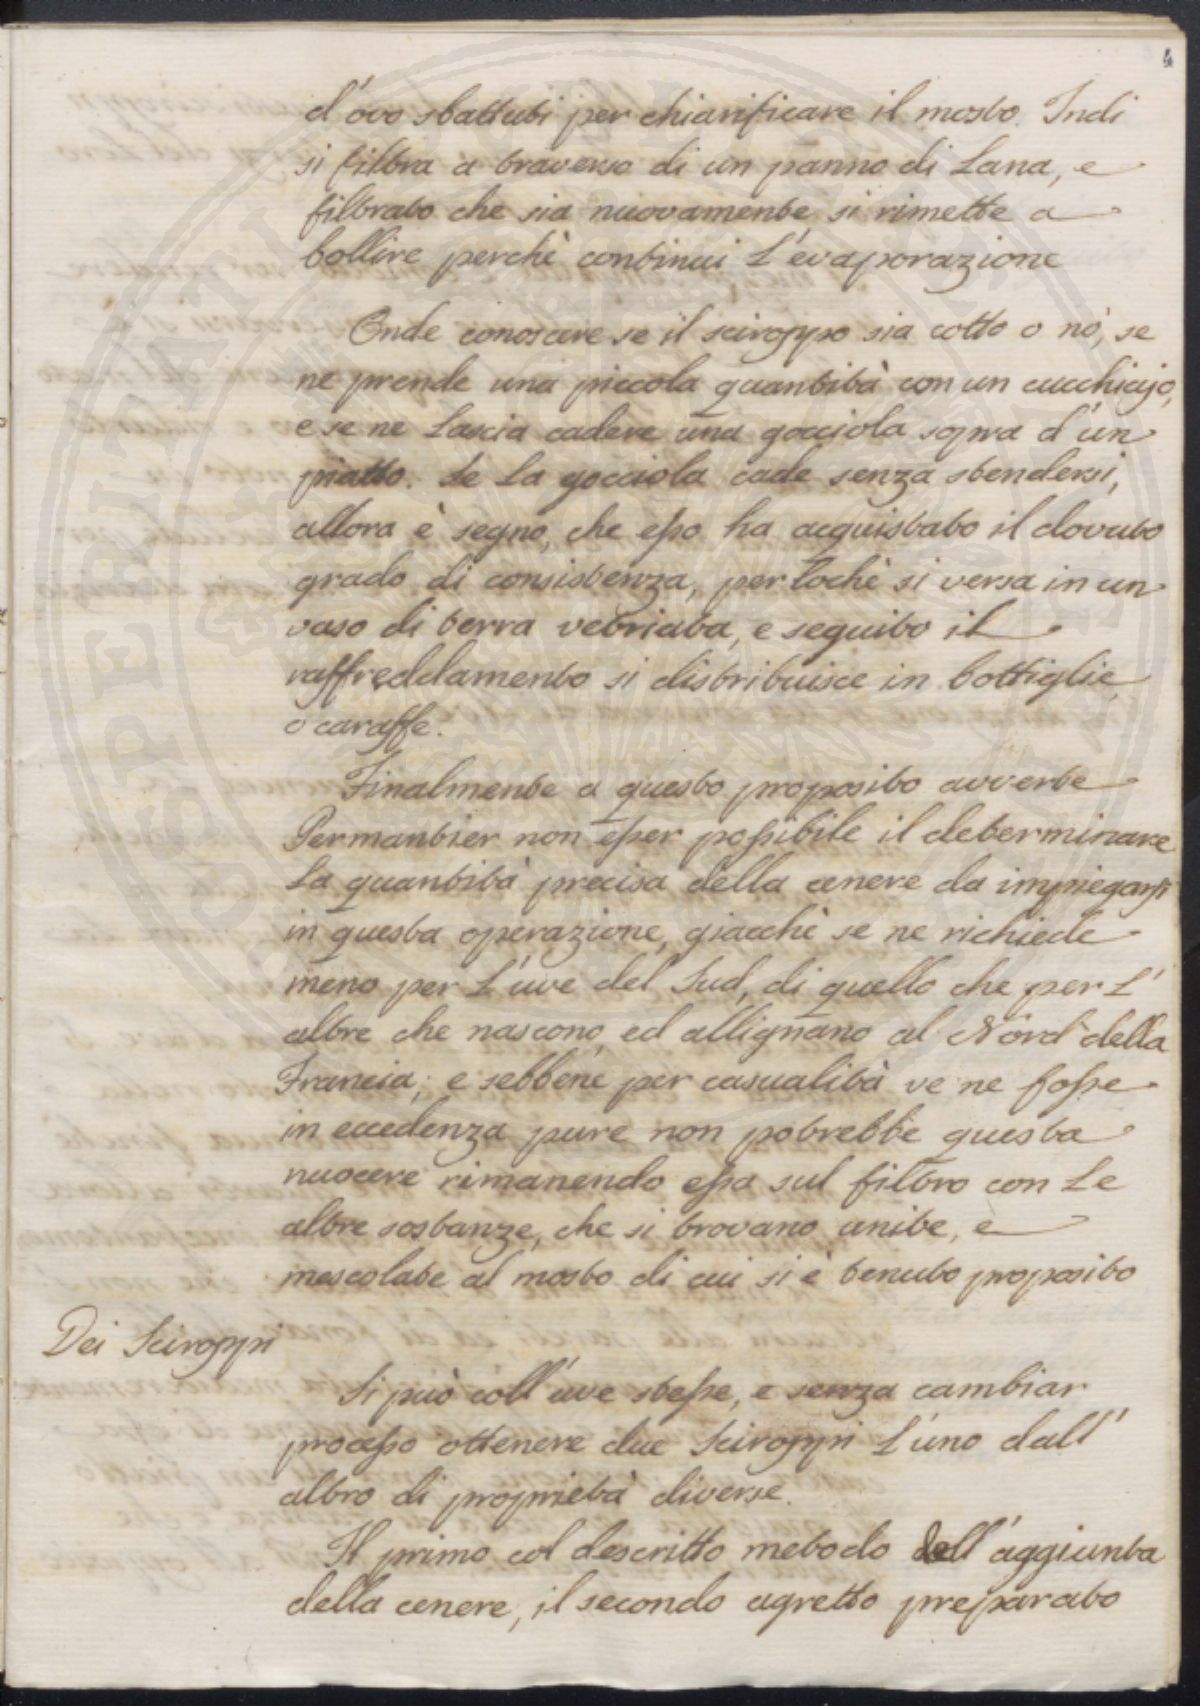 4
d'ovo sbattuti per chiarificare il mosto. Indi
si filtra a traverso di un panno di Lana, e
filtrato che sia nuovamente si rimette a
bollire perchè continui L'evaporazione
Onde conoscere se il sciroppo sia cotto o nò, se
ne prende una piccola quantità con un cucchiajo,
e se ne Lascia cadere una gocciola sopra d'un
piatto. Se La gocciola cade senza stendersi,
allora è segno, che esso ha acquistato il dovuto
grado di consistenza, per lochè si versa in un
vaso di terra vetriata, e seguito il
raffreddamento si distribuisce in bottiglie
o caraffe.
Finalmente a questo proposito avverte
Permantier non esser possibile il determinare
La quantità precisa della cenere da impiegarsi
in questa operazione, giacchè se ne richiede
meno per L'uve del Sud, di quello che per L'
altre che nascono, ed allignano al Nord della
Francia; e sebbene per casualità ve ne fosse
in eccedenza pure non potrebbe questa
nuocere rimanendo essa sul filtro con Le
altre sostanze, che si trovano unite, e
mescolate al mosto di cui si è tenuto proposito
Dei Sciroppi
Si può coll'uve stesse, e senza cambiar
processo ottenere due Sciroppi L'uno dall'
altro di proprietà diverse.
Il primo col descritto metodo dell'aggiunta
della cenere, il secondo agretto preparato